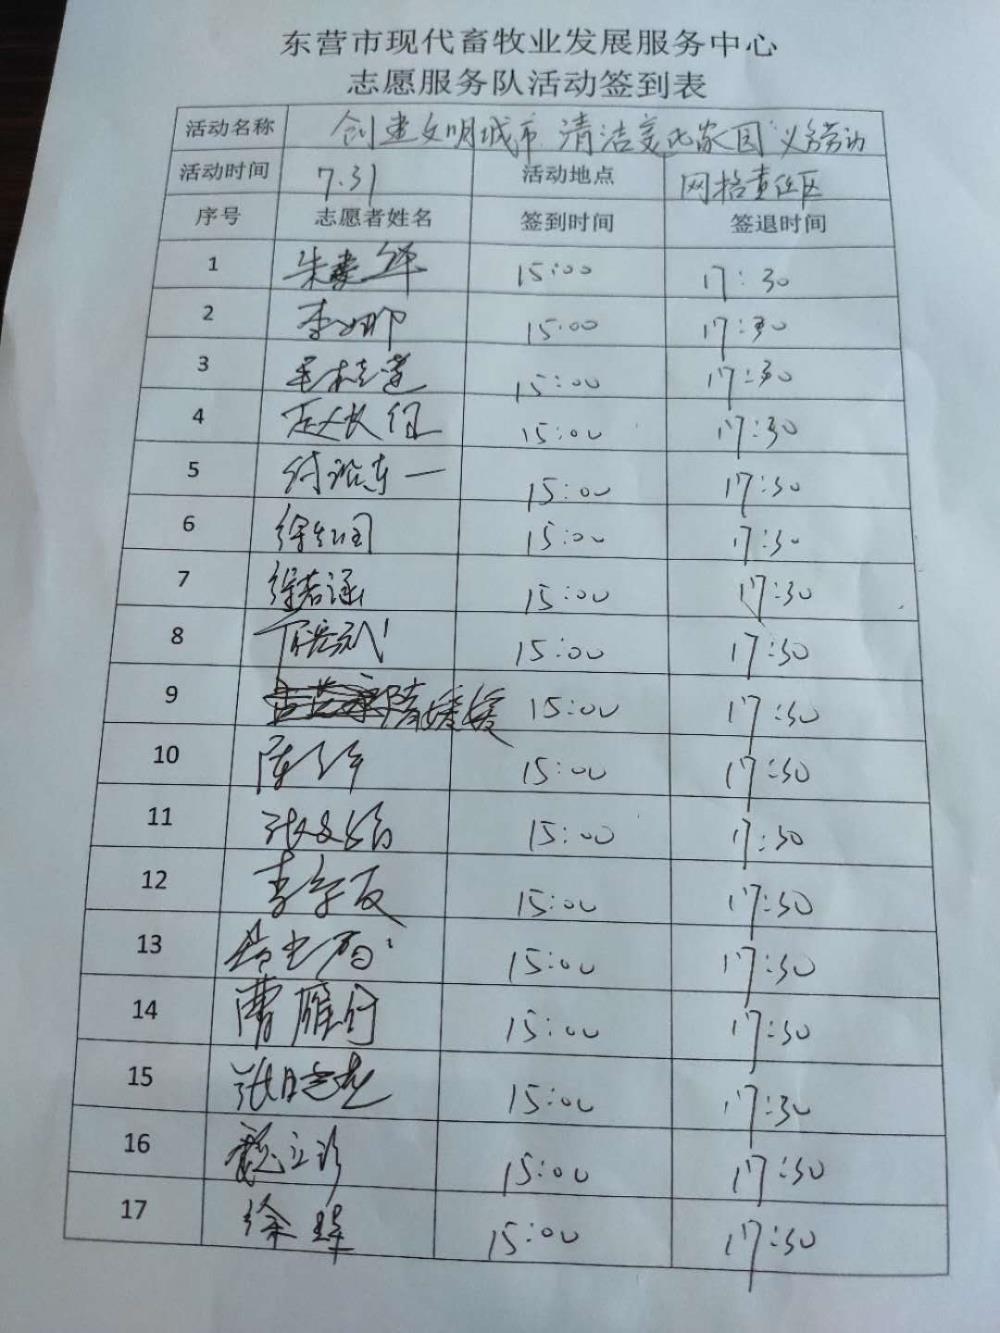 东营市现代畜牧业发展服务中心
志愿服务队活动签到表
活动名称 创建文明城市 清洁美化家园 义务劳动
活动时间 7.31 活动地点 网格责任区
序号 志愿者姓名 签到时间 签退时间
1 朱建华 15:00 17:30
2 李娜 15:00 17:30
3 15:00 17:30
4 赵长征 15:00 17:30
5 15:00 17:30
6 徐红国 15:00 17:30
7 徐若涵 15:00 17:30
8 15:00 17:30
9 隋媛媛 15:00 17:30
10 15:00 17:30
11 张文娟 15:00 17:30
12 李学友 15:00 17:30
13 15:00 17:30
14 曹雁行 15:00 17:30
15 15:00 17:30
16 魏立珍 15:00 17:30
17 15:00 17:30